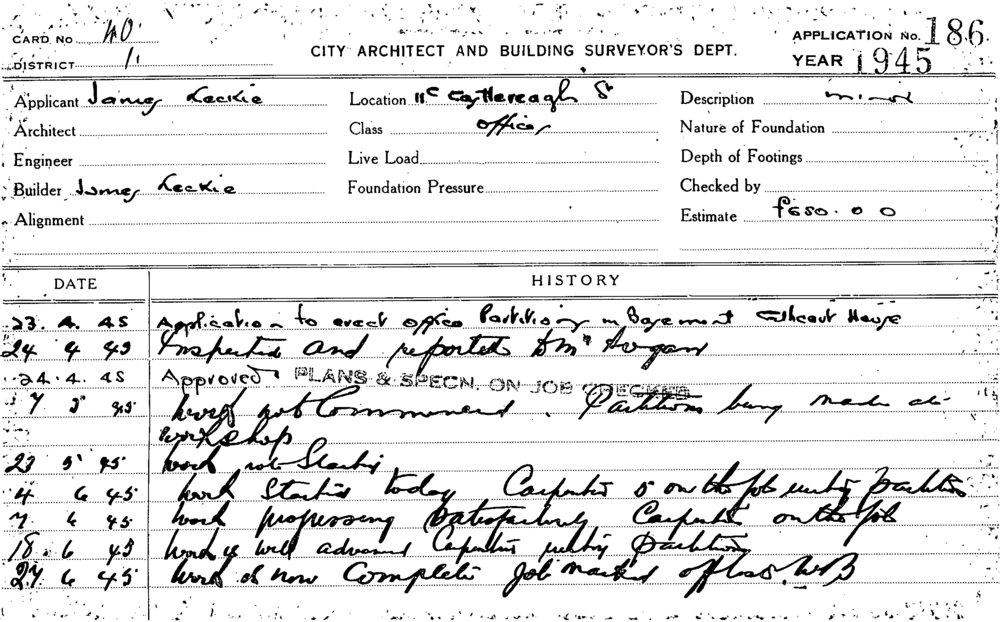 CARD No 40
DISTRICT 1.
CITY ARCHITECT AND BUILDING SURVEYOR'S DEPT.
APPLICATION No. 186
YEAR 1945
Applicant James Leckie
Location 11c Castlereagh St
Description minor
Architect
Class offices
Nature of Foundation
Engineer
Live Load
Depth of Footings
Builder James Leckie
Foundation Pressure
Checked by
Alignment
Estimate £650.0 0
DATE HISTORY
23. 4. 45 Application to erect office Partitions in Basement Cathcart House
24 4 45 Inspected and reported to Mr Hogan
24. 4. 45 Approved PLANS & SPECN. ON JOB CHECKED
7 5 45 Work not Commenced. Partitions being made at
workshop
23 5 45 Work not Started
4 6 45 Work Started today Carpenters on the job partitions
7 6 45 Work progressing Satisfactorily Carpenters on the job
18. 6 45 Work is well advanced Carpenters partitions
27 6 45 Work is now Complete Job marked off W.B